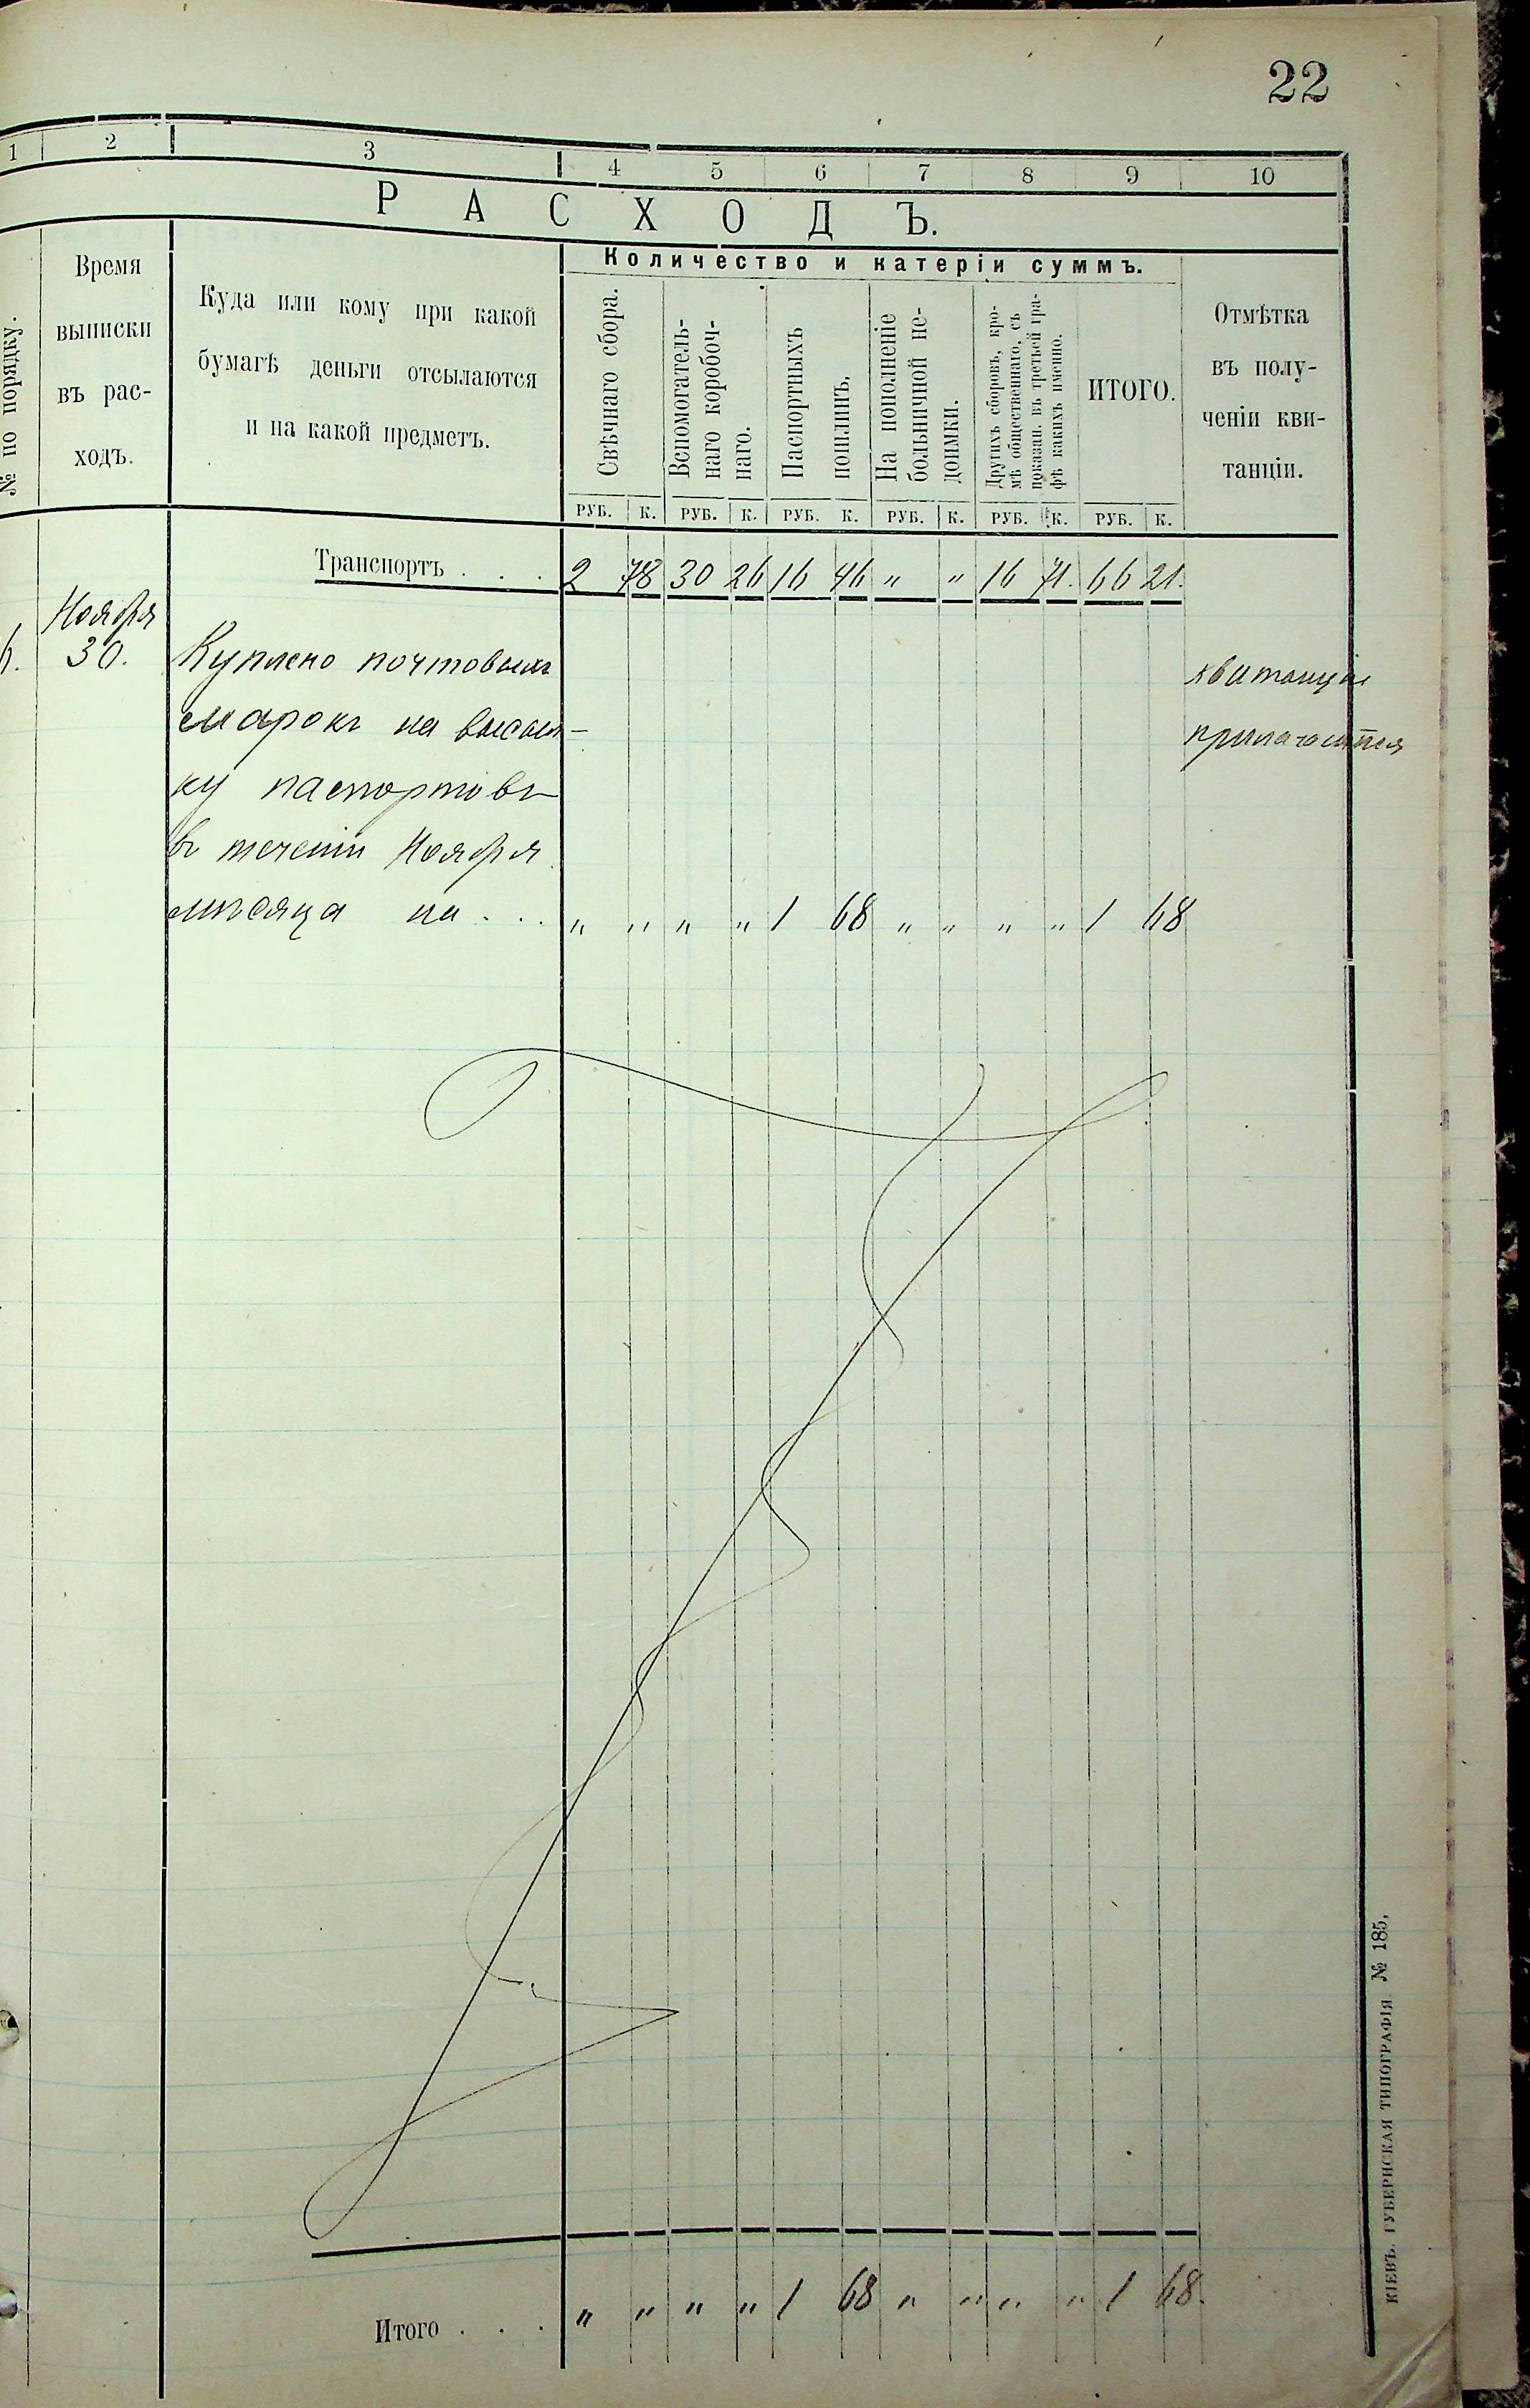 22
1 2 3 4 5 6 7 8 9 10
РАСХОДЪ.
№ по порядку.
Время
выписки
въ рас-
ходъ.
Куда или кому при какой
бумагѣ деньги отсылаются
и на какой предметъ.
Количество и катеріи суммъ.
Свѣчнаго сбора.
Вспомогатель-
наго коробоч-
наго.
Паспортныхъ
пошлинъ.
На пополненіе
больничной не-
доимки.
Другихъ сборовъ, кро-
мѣ общественнаго, съ
показан. въ третьей гра-
фѣ какихъ именно.
ИТОГО.
Отмѣтка
въ полу-
ченіи кви-
танціи.
РУБ. К. РУБ. К. РУБ. К. РУБ. К. РУБ. К. РУБ. К.
Транспортъ . . . 2 78 30 26 16 46 „ „ 16 71. 66 21.
Ноября
30. Куплено почтовыхъ
марокъ на высыл-
ку паспортовъ
въ теченіи Ноября
мѣсяца на . . . „ „ „ „ 1 68 „ „ „ „ 1 68
квитанція
прилагается
Итого . . . „ „ „ „ 1 68 „ „ „ „ 1 68.
КІЕВЪ. ГУБЕРНСКАЯ ТИПОГРАФІЯ № 185,